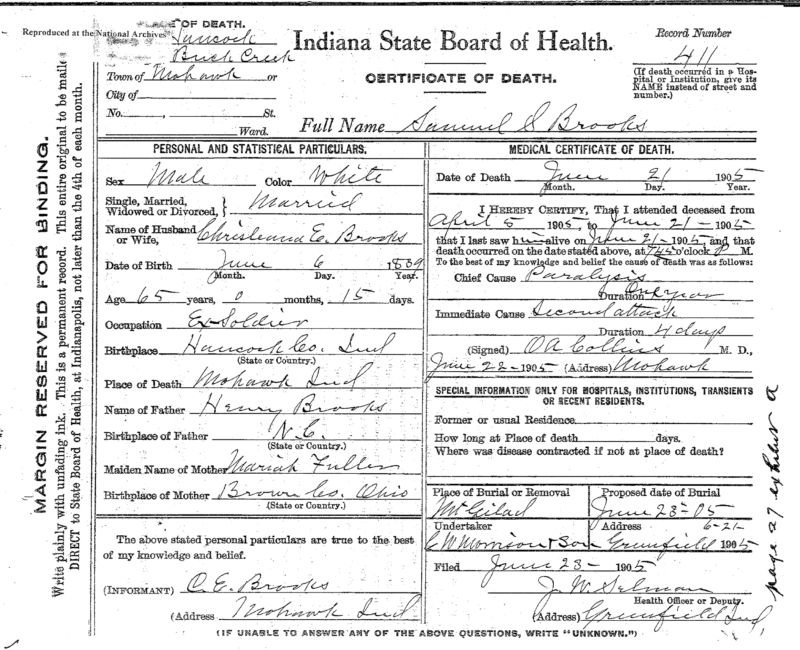 PLACE OF DEATH.
Reproduced at the National Archives
Hancock
Buck Creek
Town of Mohawk or
City of
No. , St.
Ward.
Indiana State Board of Health.
CERTIFICATE OF DEATH.
Full Name Samuel S Brooks
Record Number
411
(If death occurred in a Hos-
pital or Institution, give its
NAME instead of street and
number.)
MARGIN RESERVED FOR BINDING.
Write plainly with unfading ink. This is a permanent record. This entire original to be mailed
DIRECT to State Board of Health, at Indianapolis, not later than the 4th of each month.
PERSONAL AND STATISTICAL PARTICULARS.
Sex Male Color White
Single, Married,
Widowed or Divorced, } Married
Name of Husband
or Wife, } Christeana E. Brooks
Date of Birth June 6 1839
Month. Day. Year.
Age 65 years, 0 months, 15 days.
Occupation Ex-Soldier
Birthplace Hancock Co. Ind
(State or Country.)
Place of Death Mohawk Ind
Name of Father Henry Brooks
Birthplace of Father N.C.
(State or Country.)
Maiden Name of Mother Mariah Fuller
Birthplace of Mother Brown Co. Ohio
(State or Country.)
The above stated personal particulars are true to the best
of my knowledge and belief.
(INFORMANT) C. E. Brooks
(Address Mohawk Ind
MEDICAL CERTIFICATE OF DEATH.
Date of Death June 21 1905
Month. Day. Year.
I HEREBY CERTIFY, That I attended deceased from
April 5 1905, to June 21 - 1905
that I last saw him alive on June 21 - 1905, and that
death occurred on the date stated above, at 7:45 o'clock P M.
To the best of my knowledge and belief the cause of death was as follows:
Chief Cause Paralysis
Duration One year
Immediate Cause Second attack
Duration 4 days
(Signed) OA Collins M. D.,
June 22 - 1905 (Address) Mohawk
SPECIAL INFORMATION ONLY FOR HOSPITALS, INSTITUTIONS, TRANSIENTS
OR RECENT RESIDENTS.
Former or usual Residence
How long at Place of death days.
Where was disease contracted if not at place of death?
Place of Burial or Removal Proposed date of Burial
Mt Gilad June 23-05
Undertaker Address 6-21-
C W Morrison & Son Greenfield 1905
Filed June 23 - 1905
J. W. Selman
Health Officer or Deputy.
(Address) Greenfield Ind,
(IF UNABLE TO ANSWER ANY OF THE ABOVE QUESTIONS, WRITE "UNKNOWN.")
page 27 exhibit a